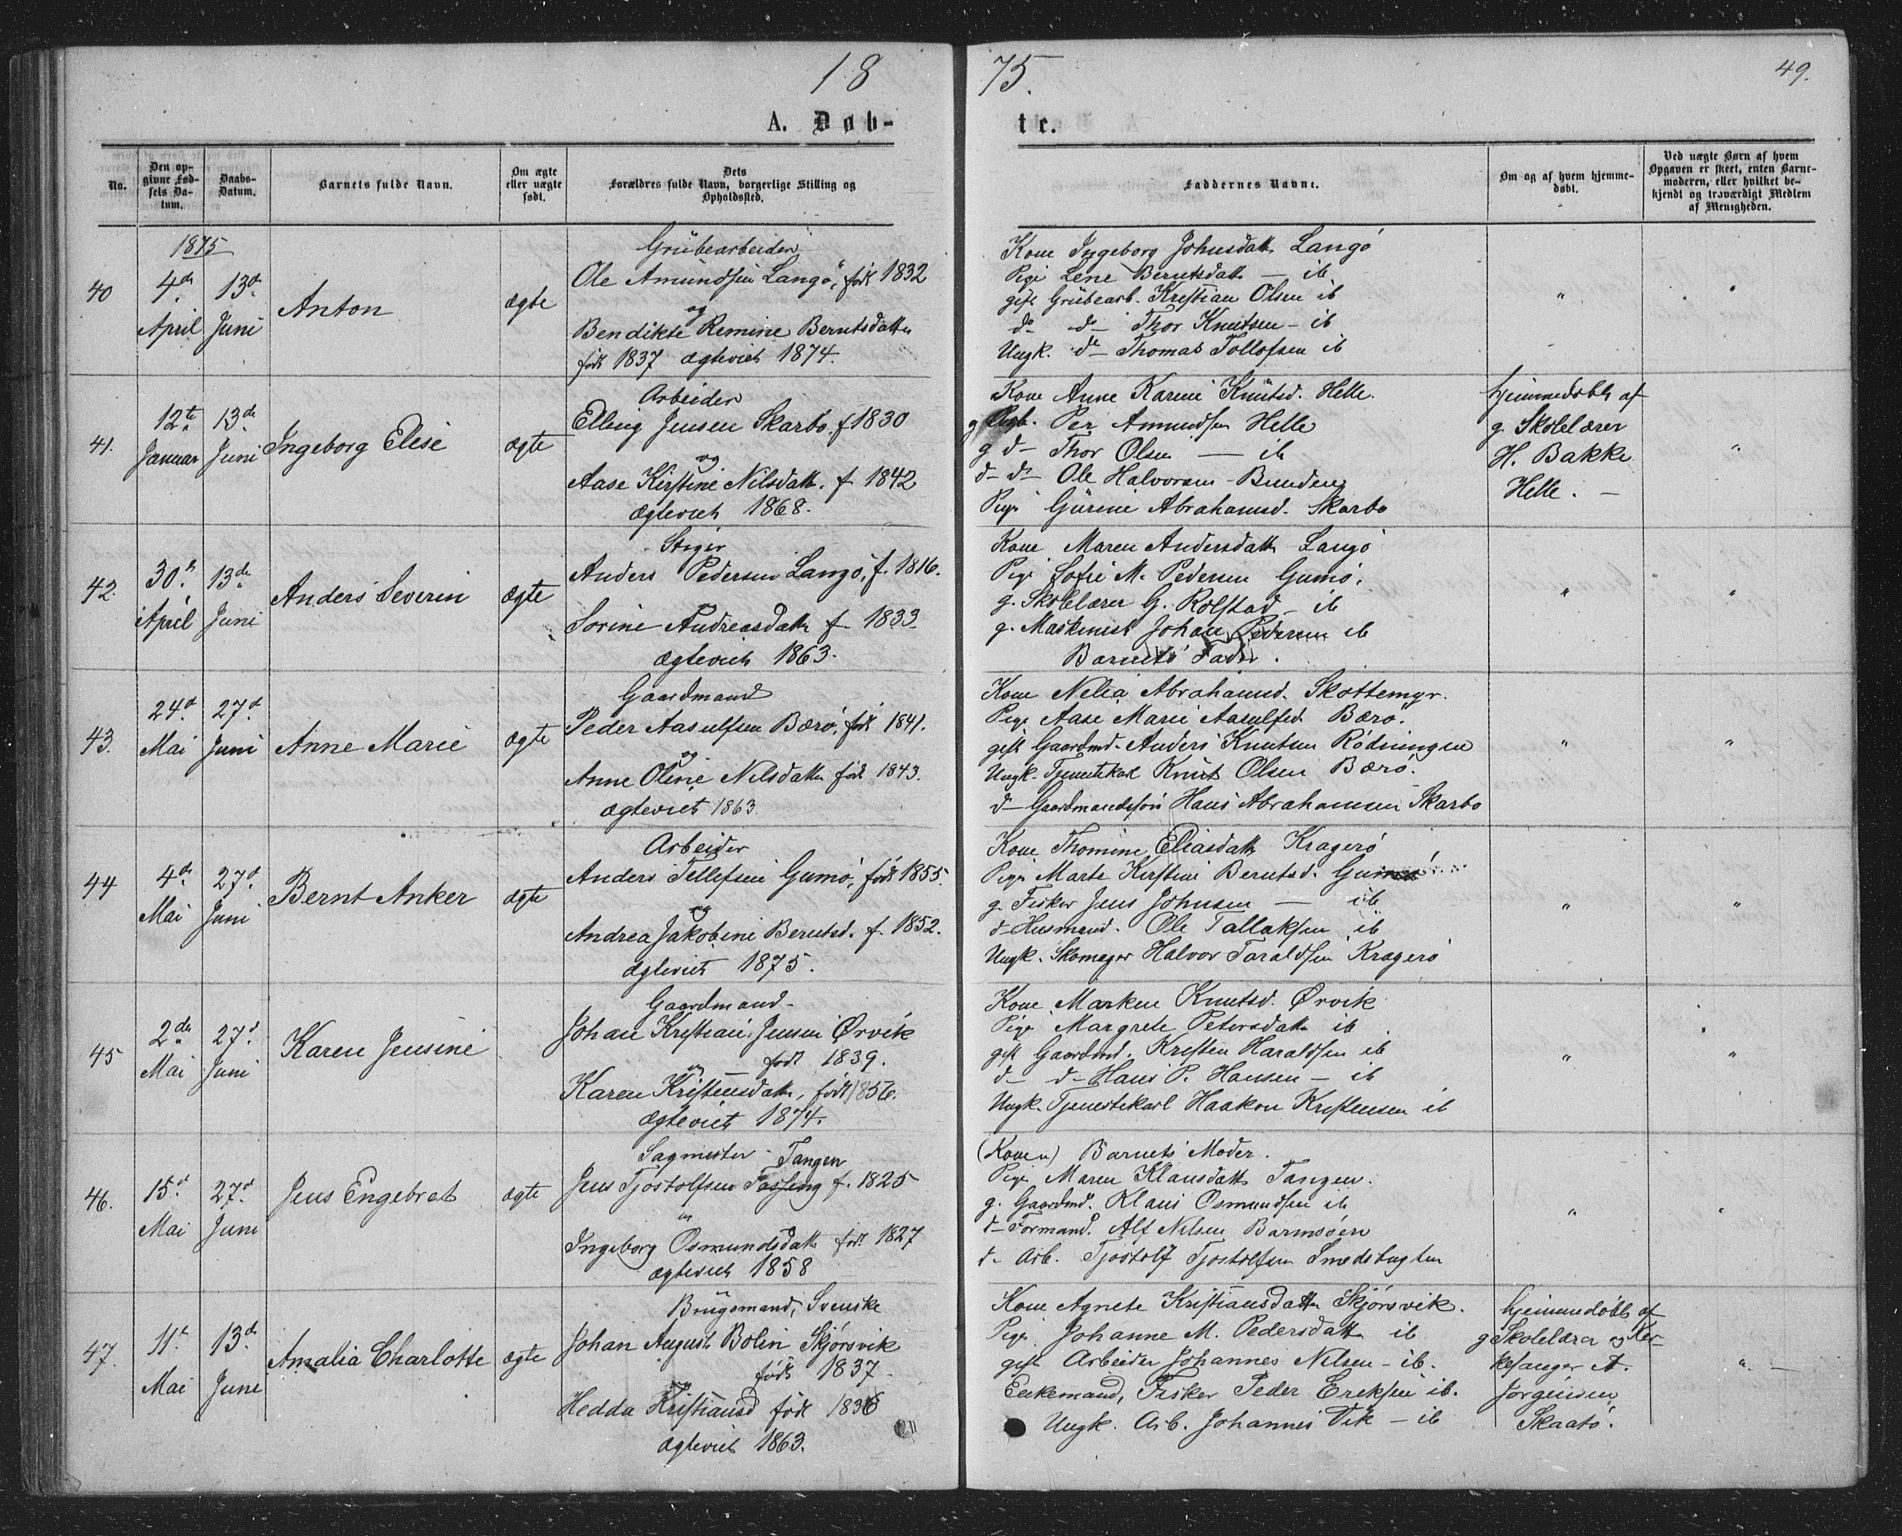 1875.
49.
A. Døbte.
No.
Den opgivne Fødsels Datum.
Daabs-Datum.
Barnets fulde Navn.
Om ægte eller uægte født.
Dets Forældres fulde Navn, borgerlige Stilling og Opholdssted.
Faddernes Navne.
Om og af hvem hjemmedøbt.
Ved uægte Børn af hvem Opgaven er skeet, enten Barnemoderen, eller hvilket bekjendt og troværdigt Medlem af Menigheden.
1875
40
4de April
13de Juni
Anton
ægte
Grubearbeider
Ole Amundsen Langø, født 1832
og
Bendikte Remine Berntsdatter
født 1837 ægteviet 1874.
Kone Ingeborg Johnsdatt Langø
Pige Lene Berntsdatt — ib
gift Grübearb. Kristian Olsen ib
do do Thor Knutsen — ib
Ungk. do Thomas Tollofsen ib
"
41.
12te Januar
13de Juni
Ingeborg Elise
ægte
Arbeider
Elling Jensen Skarbo f 1830
og
Aase Kirstine Nilsdatt. f 1842
ægteviet 1868.
Kone Anne Karine Knütsd. Helle.
g Arb. Per Amundsen Helle
g d— Thor Olsen — ib
d— d— Ole Halvorsen Bunden
Pige Gürine Abrahamsd. Skarbo
hjemmedøbt af
g. Skolelærer
H. Bakke
Helle. —
"
42.
30te April
13de Juni
Anders Severin
ægte
Stiger
Anders Pedersen Langø, f. 1816.
Sorine Andreasdatt f 1833.
ægteviet 1863.
Kone Maren Andersdatt Langø
Pige Sofie M. Pedersen Gumø.
g. Skolelærer G. Rolstad — ib
g. Maskinist Johan Pedersen ib
Barnets Fader.
"
"
43.
24de Mai
27de Juni
Anne Marie
ægte
Gaardmand
Peder Aasulfsen Bærø, født 1841.
og
Anne Oline Nilsdatter født 1843.
ægteviet 1863
Kone Nelia Abrahamsd. Skottemyr.
Pige Aase Marie Aasulfsd Bærø.
gift Gaardmd. Anders Knutsen Rødningen
Ungk. Tjenestekarl Knut Olsen Bærø.
d— Gaardmandssøn Hans Abrahamsen Skarbo
"
"
44
4de Mai
27de Juni
Bernt Anker
ægte
Arbeider
Anders Tellefsen Gumø, født 1855.
og
Andrea Jakobine Berntsd. f. 1852.
ægteviet 1875.
Kone Thomine Eliasdatt Kragerø
Pige Marte Kirstine Berntsd. Gumø
g. Fisker Jens Johnsen — ib
d— Husmand. Ole Tallaksen ib
Ungk. Skomager Halvor Taraldsen Kragerø
"
"
45
2den Mai
27de Juni
Karen Jensine
Gaardmand.
Johan Kristian Jensen Ørvik
født 1839.
Karen Kristensdatt, født 1856.
ægteviet 1874.
Kone Marken Knutsd. Ørvik
Pige Margrete Petersdatt ib
gift Gaardmd. Kristen Haraldsen ib
d— d— Hans P. Hansen — ib
Ungk. Tjenestekarl Haakon Kristensen ib
"
"
46.
15de Mai
27de Juni
Jens Engebret
ægte
Sagmester Tangen
Jens Tjøstolfsen f. 1825
Ingeborg Osmundsdatt født 1827
ægteviet 1858
(Konen) Barnets Moder.
Pige Maren Klausdatt Tangen.
g. Gaardmd. Klaus Osmundsen ib
d— Formand. Alf Nilsen Barmsøen
d— Arb. Tjøstolf Tjøstolfsen Smedsbugten
"
"
47.
11te Mai
13de Juni
Amalia Charlotte
ægte
Brügsmand, Svenske
Johan August Bolin Skjørsvik
født 1837.
Hedda Kristiansd født 1836
ægteviet 1863.
Kone Agnete Kristiansdatter Skjørsvik.
Pige Johanne M. Pedersdatt ib
gift Arbeider Johannes Nilsen — ib.
Enkemand, Fisker Peder Eriksen ib.
Ungk. Arb. Johannes Vik — ib
hjemmedøbt af
g Skolelærer og Kirkesanger A.
Jørgensen
Skaatø.
"